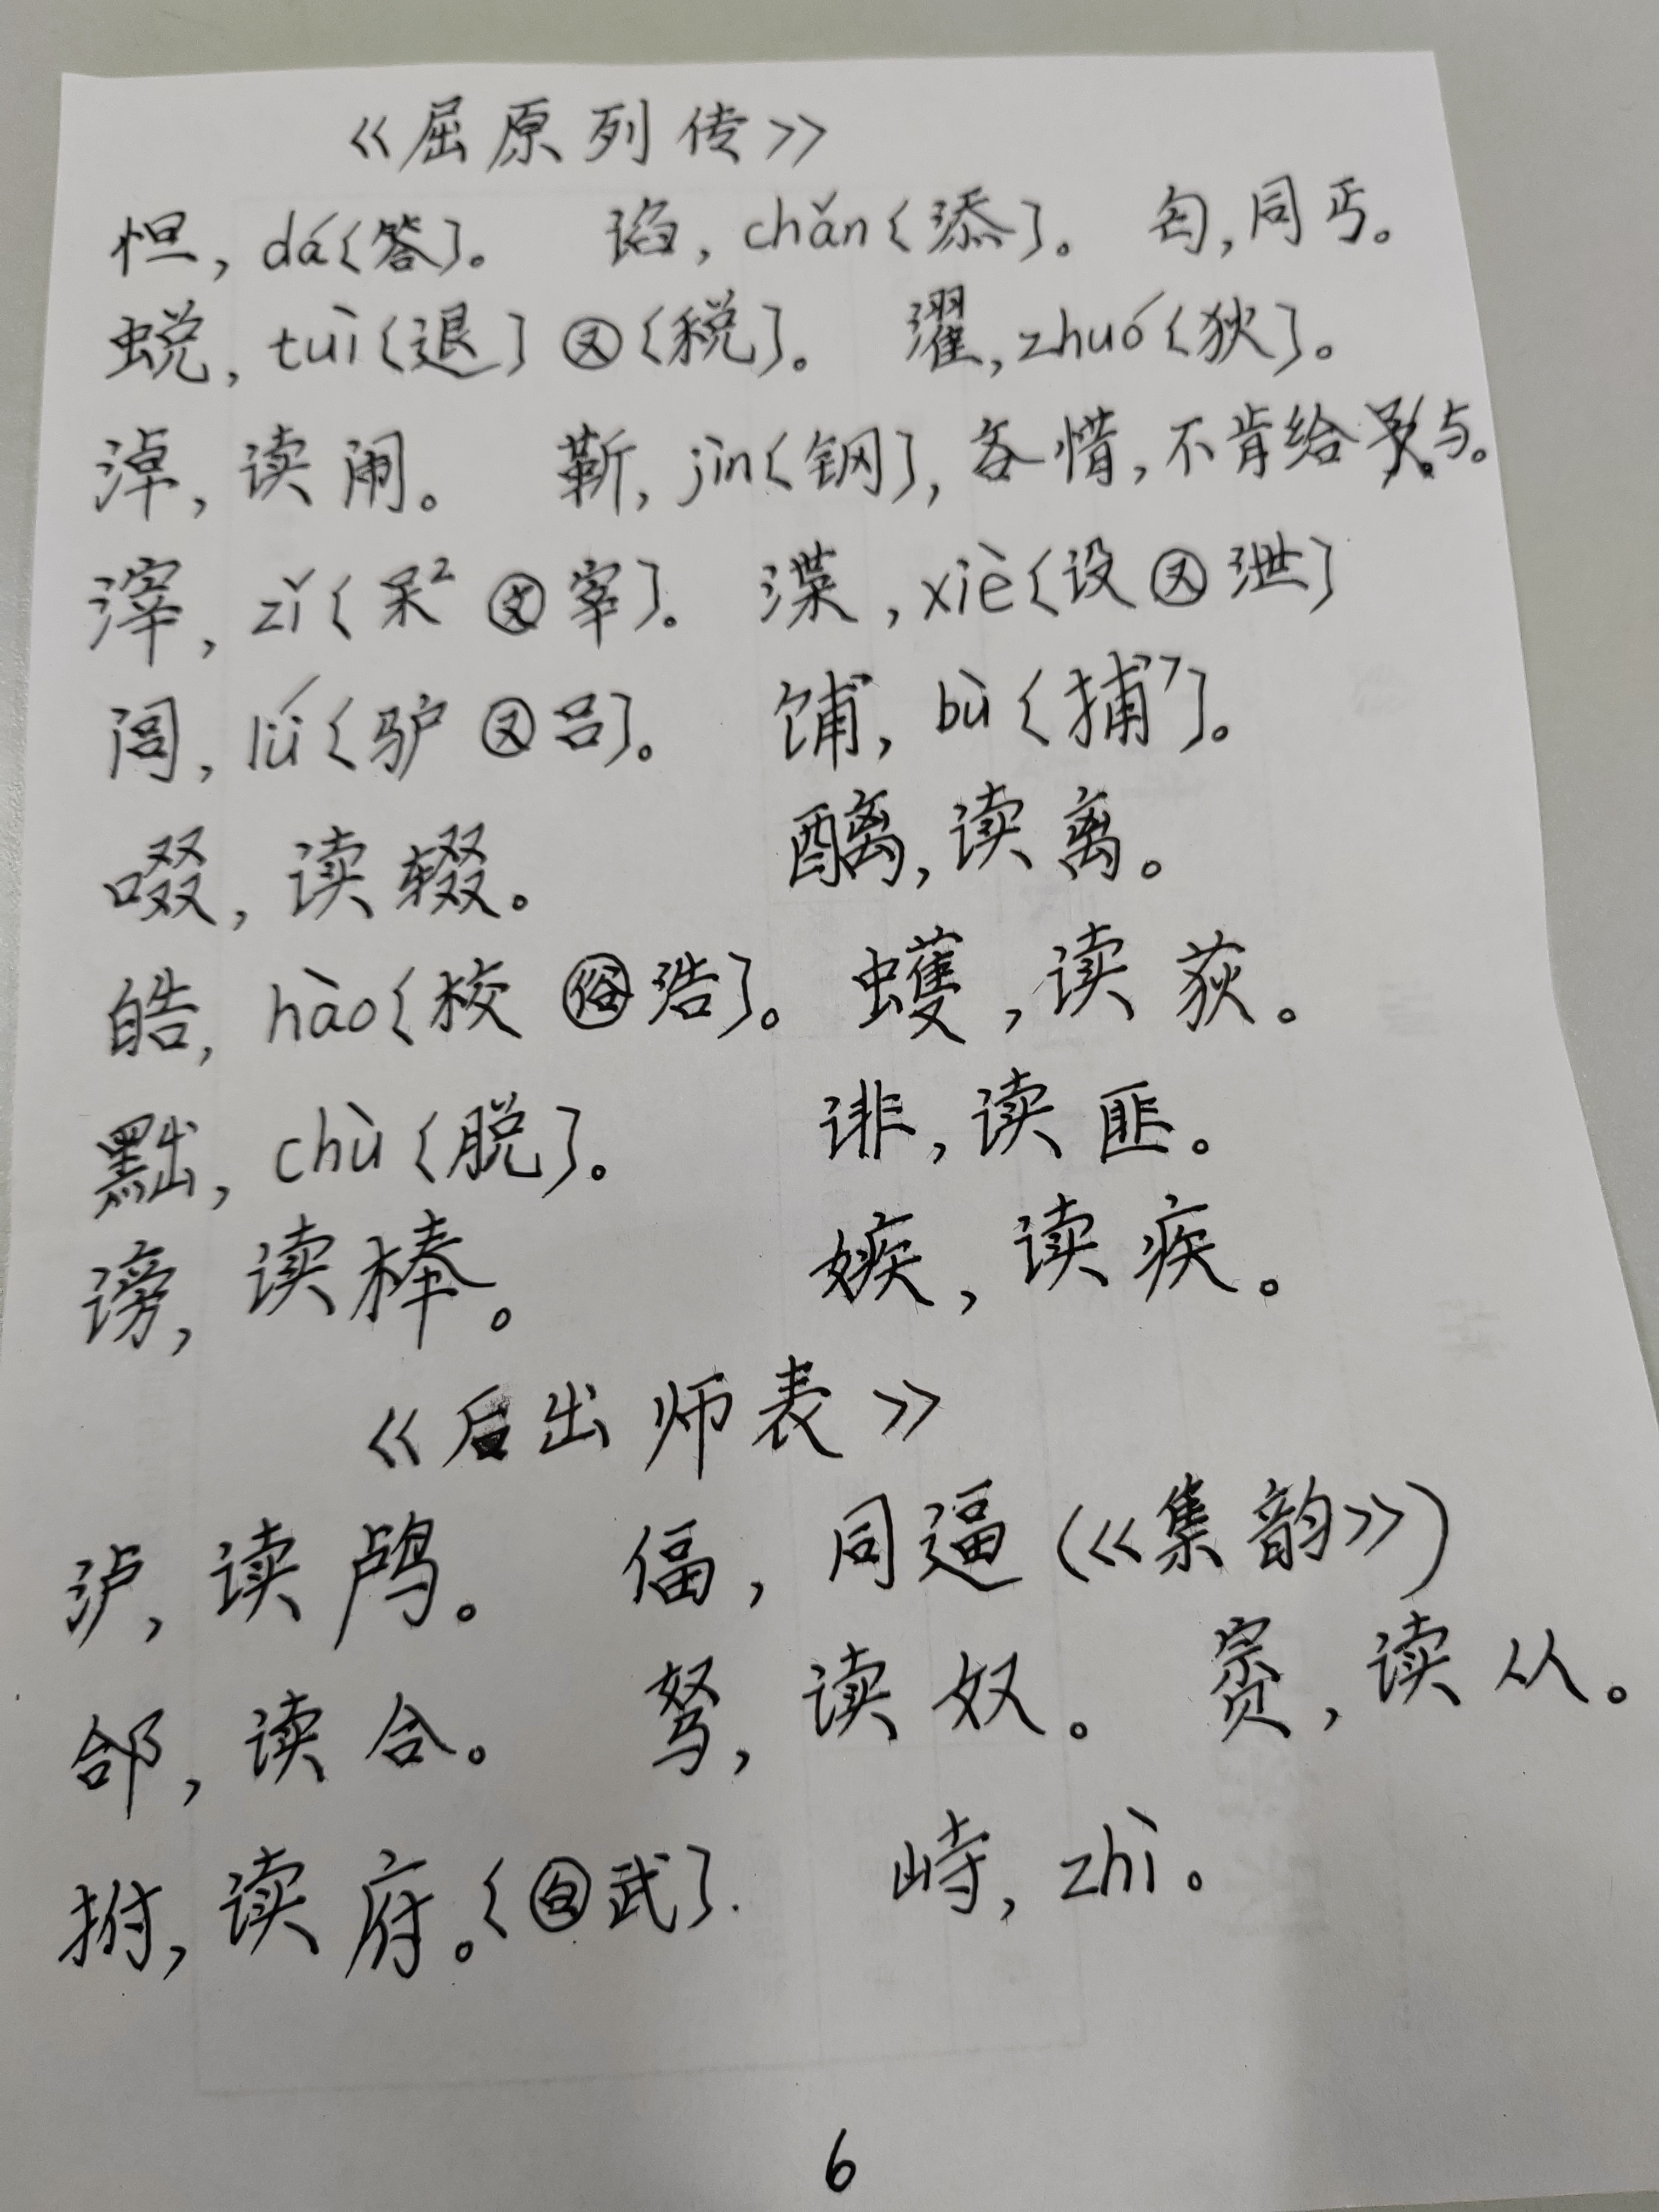 《屈原列传》
怛，dá〔答〕。 谄，chǎn〔添〕。 匃，同丐。
蜕，tuì〔退〕又〔税〕。 濯，zhuó〔狄〕。
淖，读闹。 靳，jìn〔钢〕，吝惜，不肯给与。
滓，zǐ〔呆² 文宰〕。 渫，xiè〔设又泄〕
闾，lǘ〔驴又吕〕。 餔，bù〔捕⁷〕。
啜，读辍。 醨，读离。
皓，hào〔校俗浩〕。 蠖，读荻。
黜，chù〔脱〕。 诽，读匪。
谤，读棒。 嫉，读疾。
《后出师表》
泸，读鸬。 偪，同逼（《集韵》）
郃，读合。 驽，读奴。 賨，读从。
拊，读府。〔白武〕. 峙，zhì。
6